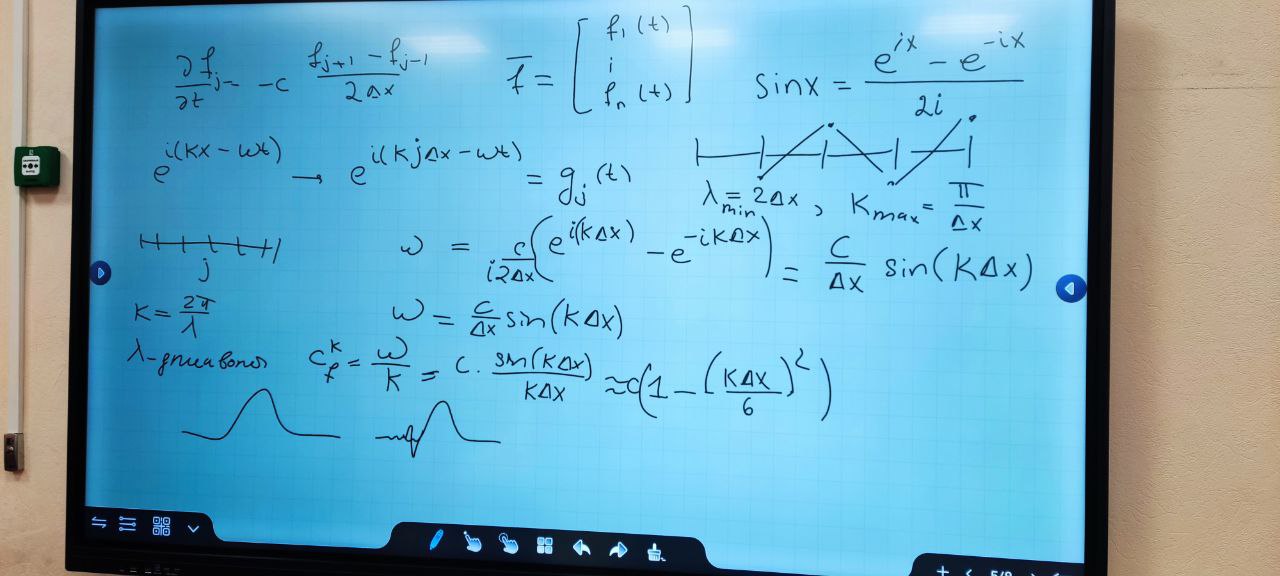 ∂f_j/∂t = -c (f_{j+1} - f_{j-1})/(2Δx)
f̄ = [f₁(t) ⋮ f_n(t)]
sin x = (e^{ix} - e^{-ix})/(2i)
e^{i(kx - ωt)} → e^{i(kjΔx - ωt)} = g_j(t)
λ_min = 2Δx, k_max = π/Δx
j
ω = c/(i2Δx) (e^{i(kΔx)} - e^{-ikΔx}) = c/Δx sin(kΔx)
k = 2π/λ
ω = c/Δx sin(kΔx)
λ - длина волны
c_f^k = ω/k = c · sin(kΔx)/(kΔx) ≈ c(1 - (kΔx/6)²)